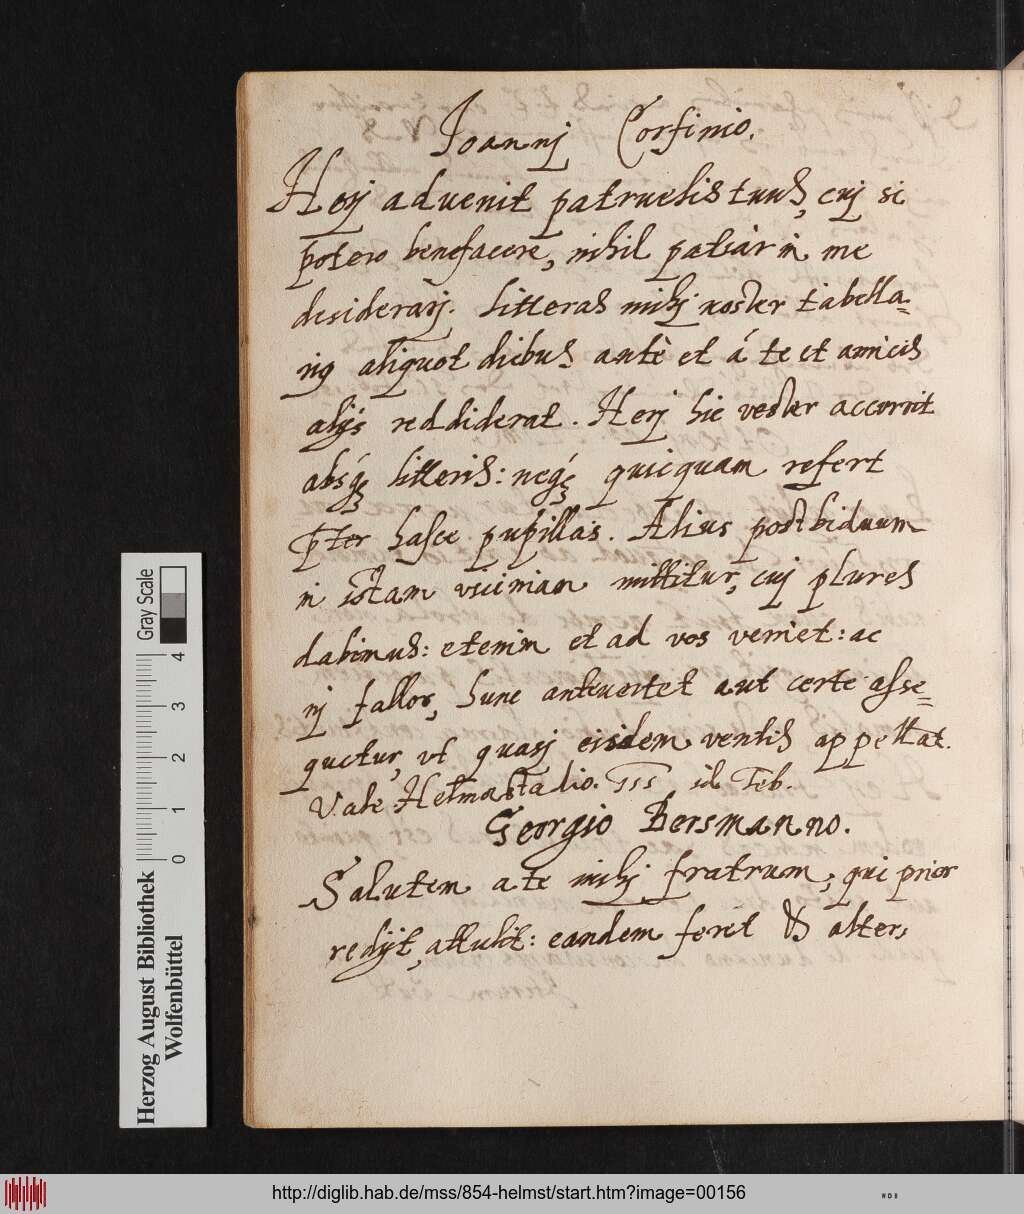 Ioannj Corfinio.
Herj aduenit patruelis tuus, cuj si
potero benefacere, nihil patiar in me
desiderarj. litteras mihj noster tabella=
riꝯ aliquot diebus ante et á te et amicis
alijs reddiderat. Herj hic vester accurrit
absqꝫ litteris: neqꝫ quicquam refert
p̄ter hasce pupillas. Alius post biduum
in istam viciniam mittitur, cuj plures
dabimus: etenim et ad vos veniet: ac
nj fallor, hunc anteuertet aut certe asse=
quetur, vt quasj eisdem ventis appellat.
Vale Helmastadio. id Feb.
Georgio Bersmanno.
Salutem a te mihj fratrum, qui prior
redijt, attulit: eandem feret & alter,
Herzog August Bibliothek
Wolfenbüttel
0 1 2 3 4
Gray Scale
http://diglib.hab.de/mss/854-helmst/start.htm?image=00156